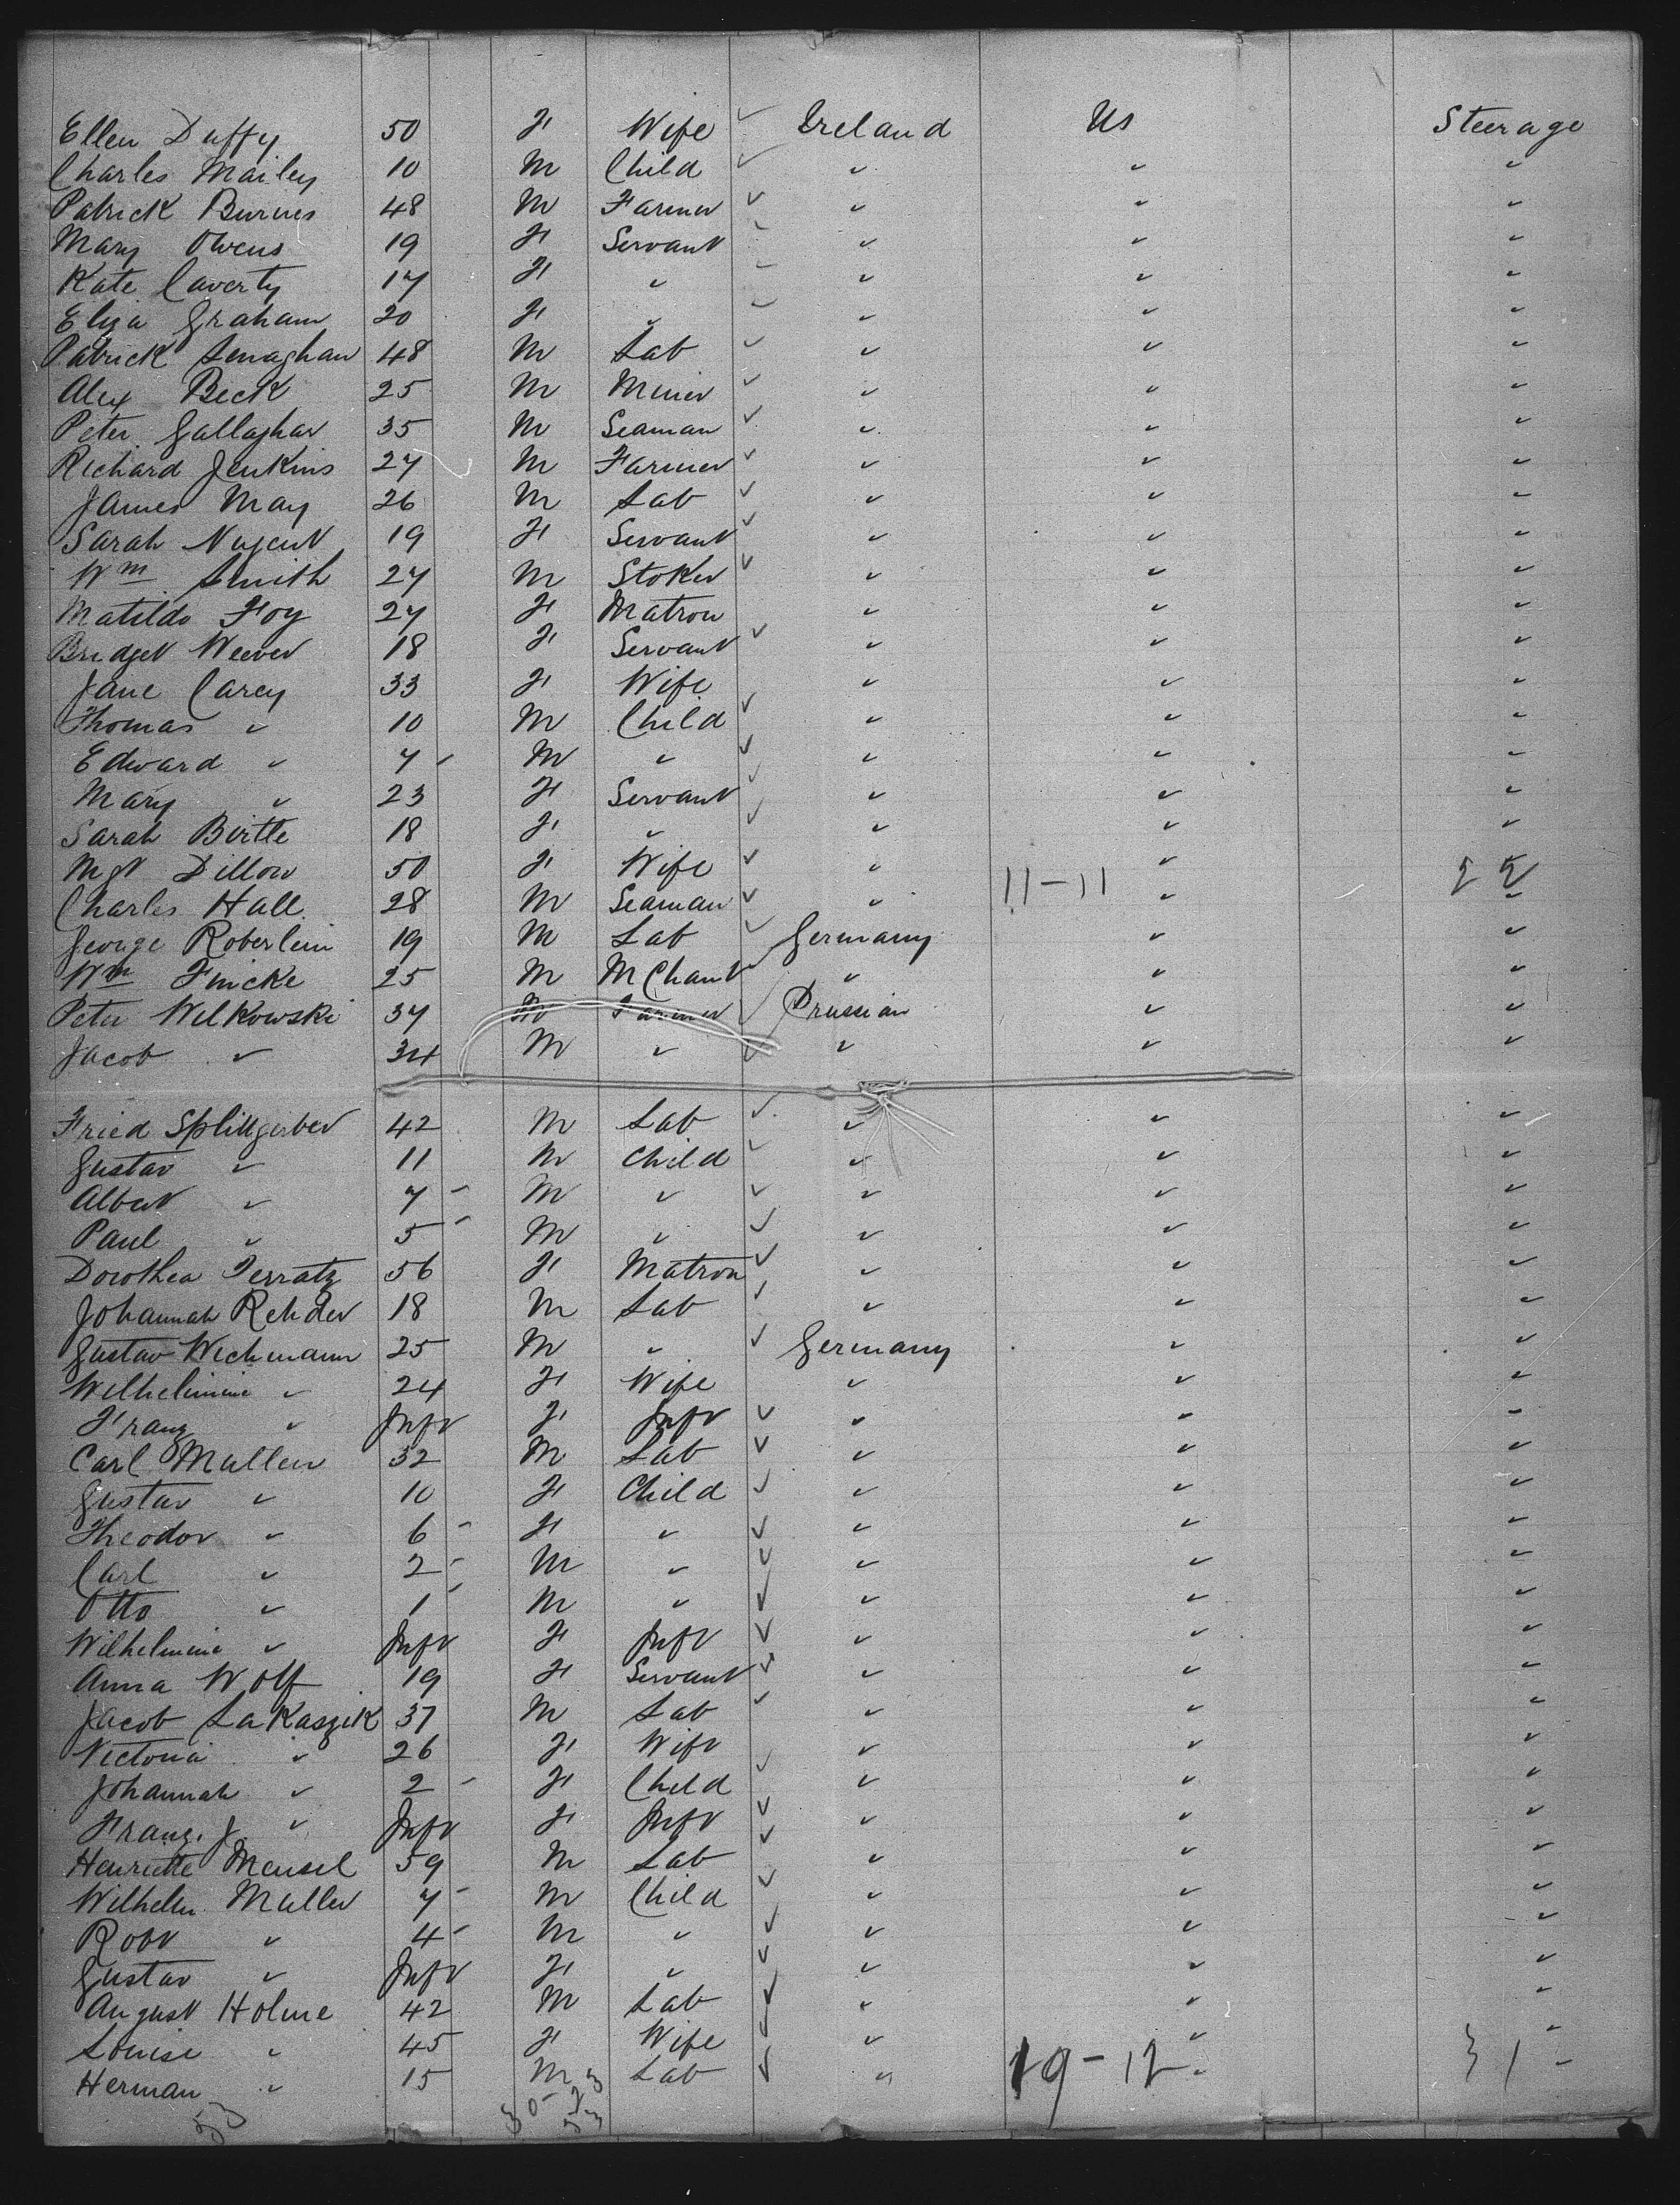 Ellen Duffy 50 F Wife ✓ Ireland Us Steerage
Charles Mailey 10 M Child ✓ " " "
Patrick Burnes 48 M Farmer ✓ " " "
Mary Owens 19 F Servant ✓ " " "
Kate Caverty 17 F " ✓ " " "
Eliza Graham 20 F " ✓ " " "
Patrick Lenaghan 48 M Lab ✓ " " "
Alex Beck 25 M Miner ✓ " " "
Peter Gallaghar 35 M Seaman ✓ " " "
Richard Jenkins 27 M Farmer ✓ " " "
James May 26 M Lab ✓ " " "
Sarah Nugent 19 F Servant ✓ " " "
Wm Smith 27 M Stoker ✓ " " "
Matilda Foy 27 F Matron " " "
Bridget Weever 18 F Servant ✓ " " "
Jane Carey 33 F Wife " " "
Thomas " 10 M Child ✓ " " "
Edward " 7 M " ✓ " " "
Mary " 23 F Servant ✓ " " "
Sarah Birtle 18 F " ✓ " " "
Mgt Dillon 50 F Wife ✓ " " "
Charles Hall 28 M Seaman ✓ " 11-11 " 22 "
George Roberlein 19 M Lab ✓ Germany " "
Wm Fincke 25 M MChant ✓ " " "
Peter Wilkowski 37 M Farmer ✓ Prussian " "
Jacob " 34 M " ✓ " " "
Fried Splittgerber 42 M Lab ✓ " " "
Gustav " 11 M Child ✓ " " "
Albert " 7 M " ✓ " " "
Paul " 5 M " ✓ " " "
Dorothea Terratz 56 F Matron ✓ " " "
Johannah Rehder 18 M Lab ✓ " " "
Gustav Wichmann 25 M " ✓ Germany " "
Wilhelmine " 24 F Wife " " "
Franz " Inft F Inft ✓ " " "
Carl Mullen 32 M Lab ✓ " " "
Gustav " 10 F Child ✓ " " "
Theodor " 6 F " ✓ " " "
Carl " 2 M " ✓ " " "
Otto " 1 M " ✓ " " "
Wilhelmine " Inft F Inft ✓ " " "
Anna Wolf 19 F Servant ✓ " " "
Jacob LaKaszik 37 M Lab ✓ " " "
Victoria " 26 F Wife " " "
Johannah " 2 F Child ✓ " " "
Franz. J " Inft F Inft ✓ " " "
Henriette Mensel 59 M Lab ✓ " " "
Wilhelm Muller 7 M Child ✓ " " "
Robt " 4 M " ✓ " " "
Gustav " Inft F " ✓ " " "
August Holme 42 M Lab ✓ " " "
Louise " 45 F Wife ✓ " " "
Herman " 15 M Lab ✓ " 19-12 " 31 "
53 30 23 53